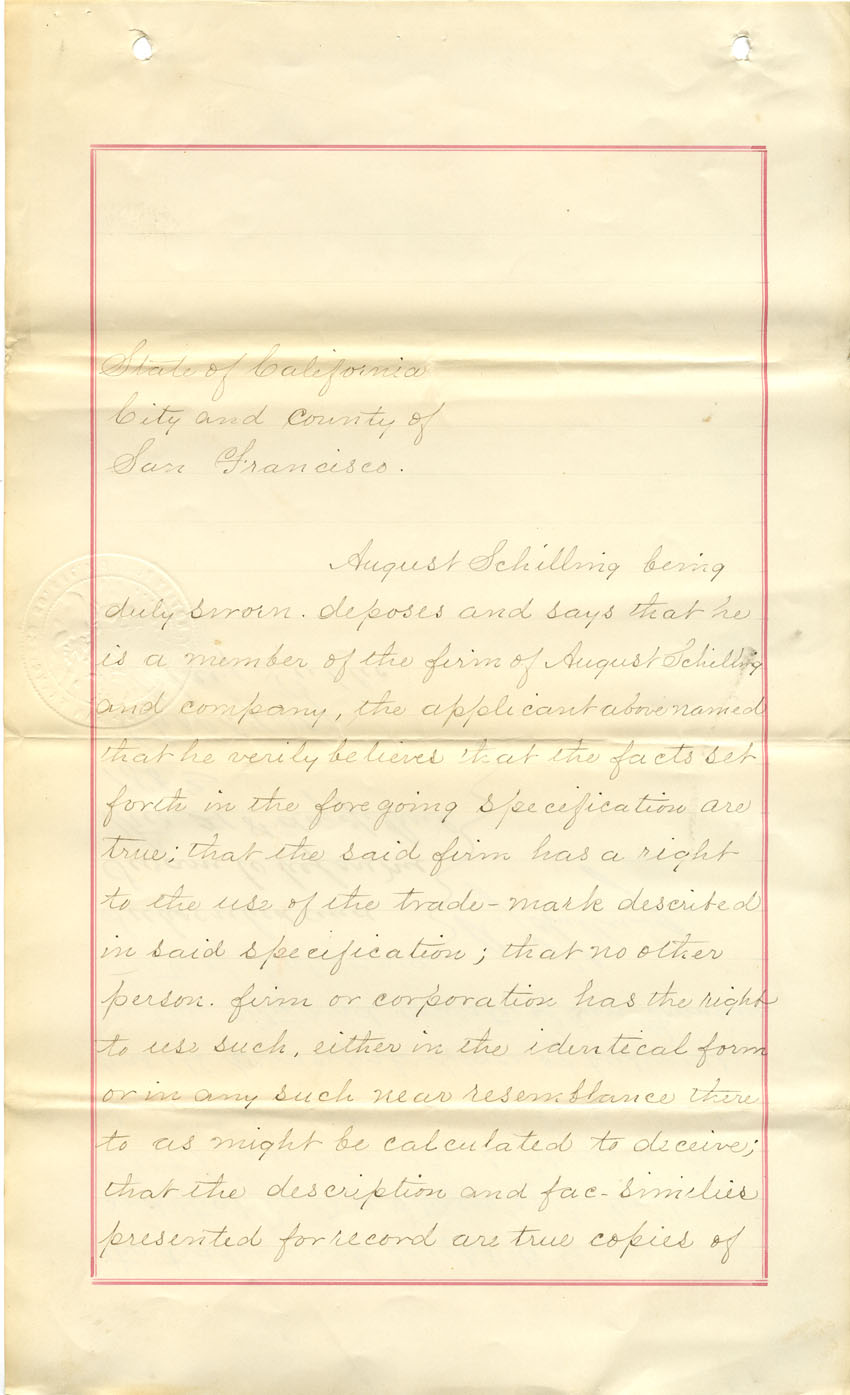 State of California
City and County of
San Francisco.
August Schilling being
duly sworn. deposes and says that he
is a member of the firm of August Schilling
and company, the applicant above named
that he verily believes that the facts set
forth in the foregoing specification are
true; that the said firm has a right
to the use of the trade-mark described
in said specification; that no other
person. firm or corporation has the right
to use such, either in the identical form
or in any such near resemblance there
to as might be calculated to deceive;
that the description and fac-similies
presented for record are true copies of